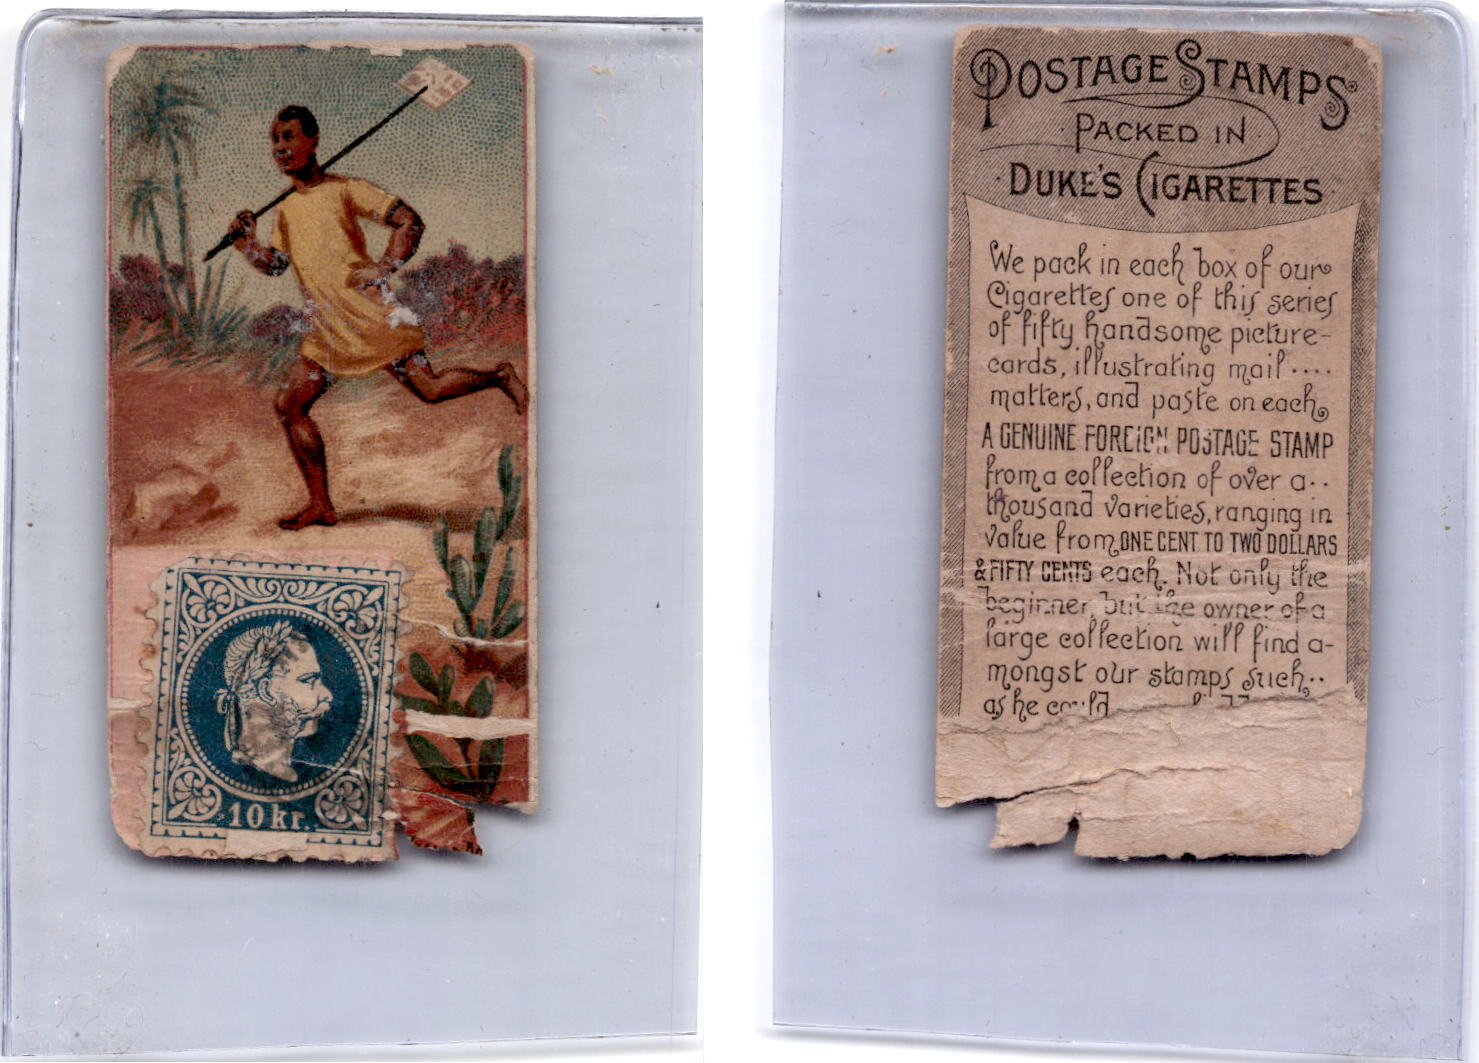 10 kr.
POSTAGE STAMPS
PACKED IN
DUKE'S CIGARETTES
We pack in each box of our
Cigarettes one of this series
of fifty handsome picture-
cards, illustrating mail ....
matters, and paste on each
A GENUINE FOREIGN POSTAGE STAMP
from a collection of over a..
thousand varieties, ranging in
value from ONE CENT TO TWO DOLLARS
& FIFTY CENTS each. Not only the
beginner, but the owner of a
large collection will find a-
mongst our stamps such..
as he could